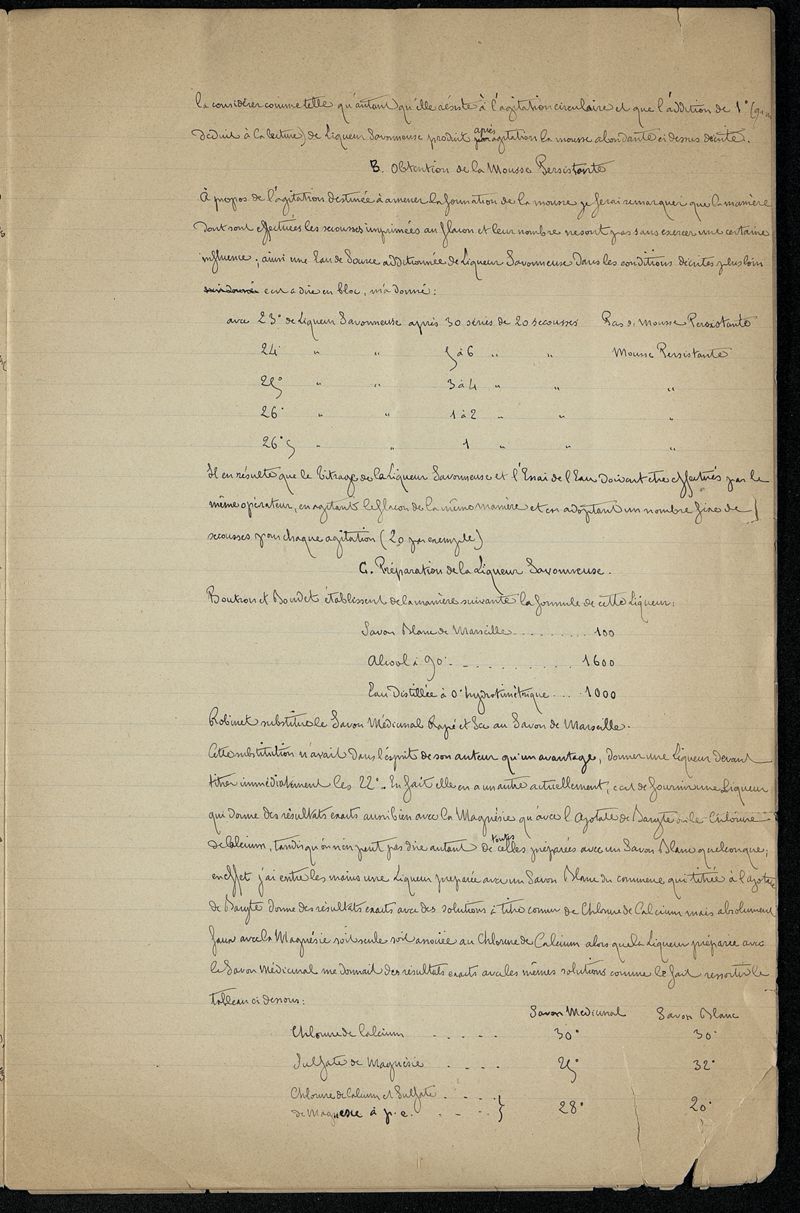 la considérer comme telle qu'autant qu'elle résiste à l'agitation circulaire et que l'addition de 1°
déduit à la lecture) de Liqueur Savonneuse produit après agitation la mousse abondante ci dessus décrite.
B. Obtention de la Mousse Persistante
À propos de l'agitation destinée à amener la formation de la mousse je ferai remarquer que la manière
dont sont effectuées les secousses imprimées au flacon et leur nombre ne sont pas sans exercer une certaine
influence; ainsi une Eau de Source additionnée de Liqueur Savonneuse dans les conditions décrites plus loin
c'est à dire en bloc, m'a donné:
avec 23° de Liqueur Savonneuse après 30 séries de 20 secousses Pas de Mousse Persistante
24° " " 5 à 6 " " Mousse Persistante
25° " " 3 à 4 " " "
26° " " 1 à 2 " " "
26°5 " " 1 " " "
Il en résulte que le titrage de la Liqueur Savonneuse et l'Essai de l'Eau doivent être effectués par le
même opérateur, en agitant le flacon de la même manière et en adoptant un nombre fixe de
secousses pour chaque agitation (20 par exemple)
C. Préparation de la Liqueur Savonneuse.
Boutron et Boudet établissent de la manière suivante la formule de cette Liqueur:
Savon Blanc de Marseille .......... 100
Alcool à 90° .......... 1600
Eau distillée à 0° hydrotimétrique .... 1000
Robinet substitue le Savon Médicinal Rapé et Sec au Savon de Marseille.
Cette substitution n'avait dans l'esprit de son auteur qu'un avantage, donner une Liqueur devant
titrer immédiatement les 22°. En fait elle en a un autre actuellement, c'est de fournir une Liqueur
qui donne des résultats exacts aussi bien avec la Magnésie qu'avec l'Azotate de Baryte ou le Chlorure
de Calcium, tandis qu'on n'en peut pas dire autant de toutes celles préparées avec un Savon Blanc quelconque;
en effet j'ai entre les mains une Liqueur préparée avec un Savon Blanc du commerce qui titrée à l'azotate
de Baryte donne des résultats exacts avec des solutions à titre connu de Chlorure de Calcium mais absolument
faux avec la Magnésie soit seule soit associée au Chlorure de Calcium alors que la Liqueur préparée avec
le Savon Médicinal me donnait des résultats exacts avec les mêmes solutions comme le fait ressortir le
tableau ci dessous:
Savon Médicinal Savon Blanc
Chlorure de Calcium ..... 30° 30°
Sulfate de Magnésie ..... 25° 32°
Chlorure de Calcium et Sulfate .....
de Magnésie à p. e. ..... } 28° 20°